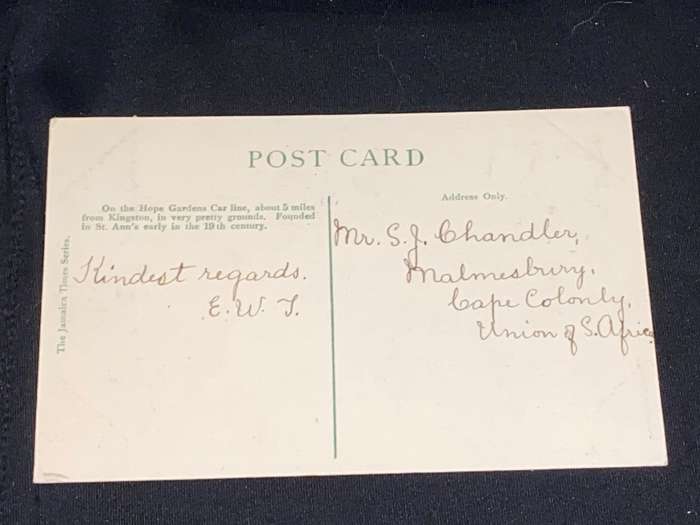 POST CARD
On the Hope Gardens Car line, about 5 miles
from Kingston, in very pretty grounds. Founded
in St. Ann's early in the 19th century.
The Jamaica Times Series.
Kindest regards.
E. W. T.
Address Only.
Mr. S. J. Chandler,
Malmesbury,
Cape Colonly,
Union of S. Africa